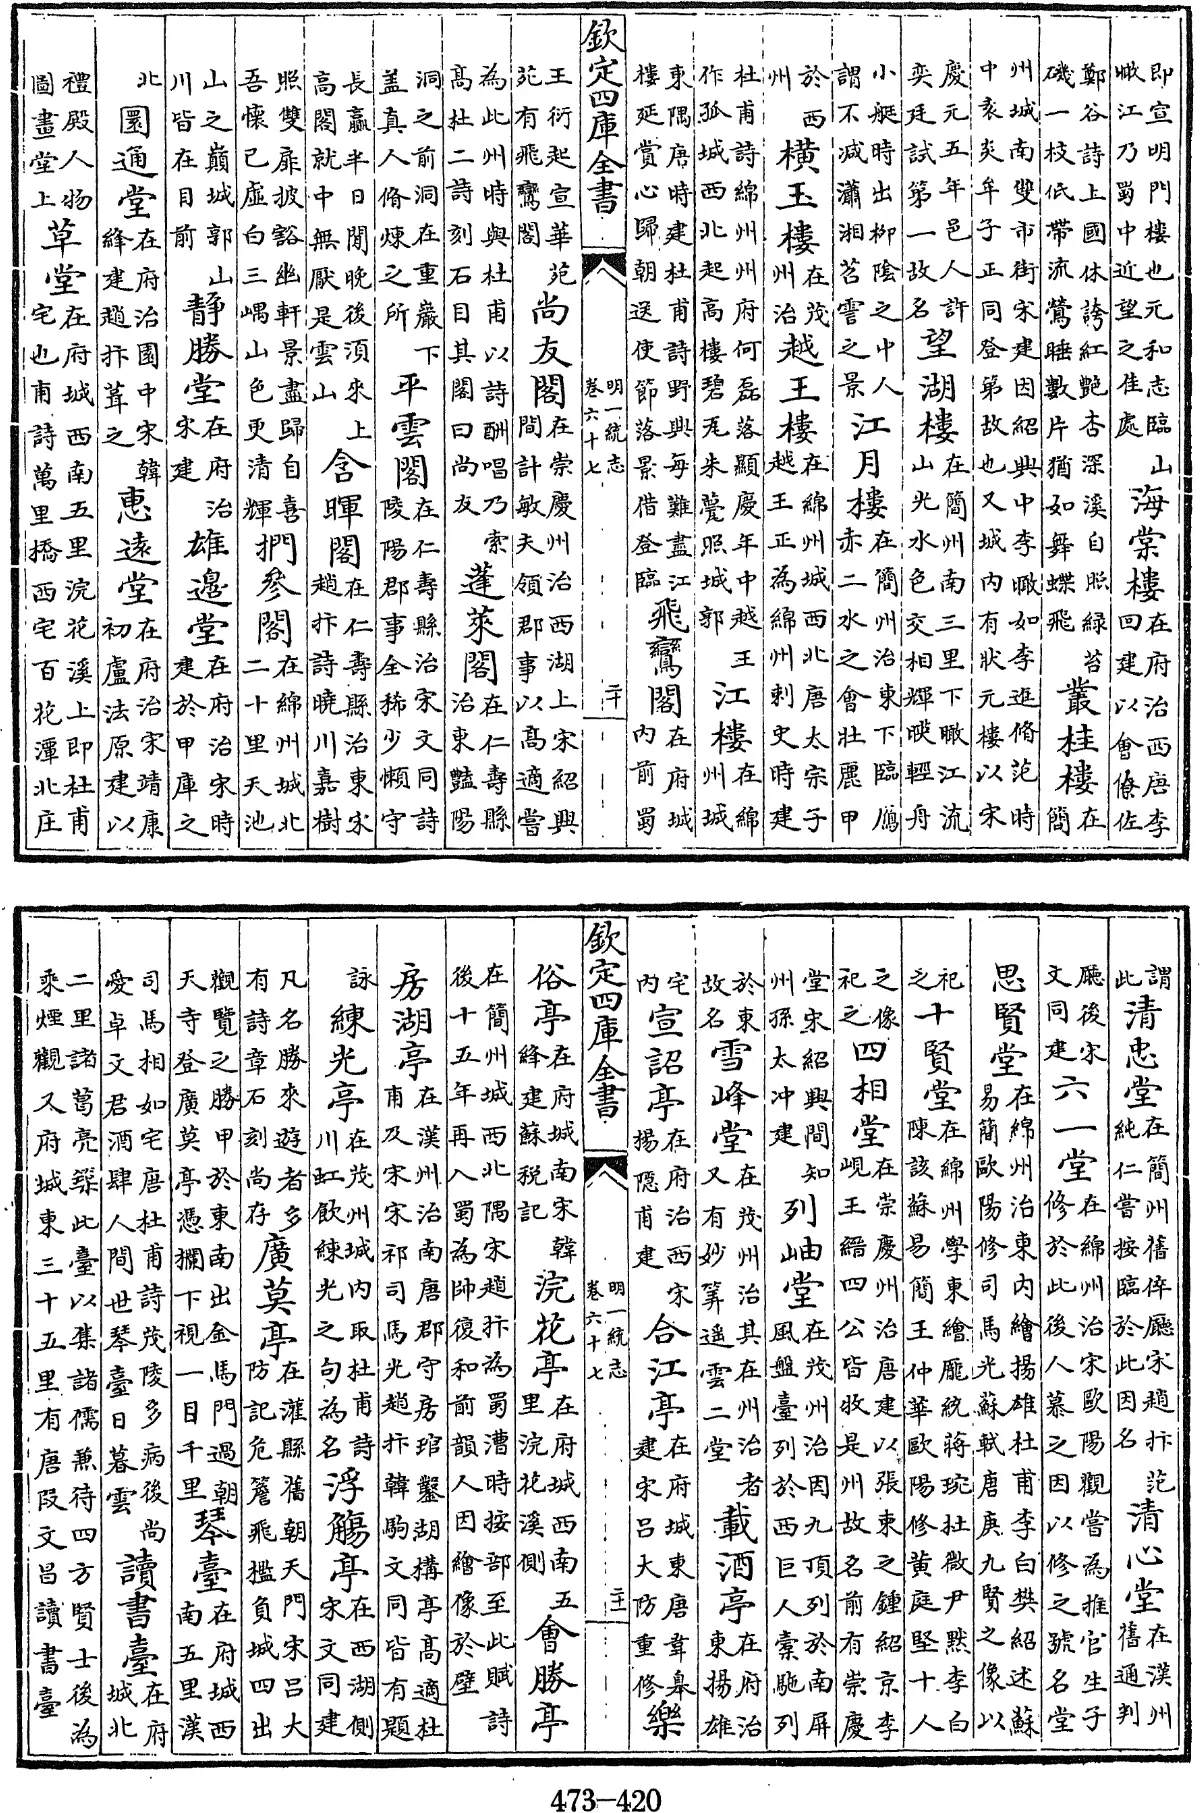 即宣明門樓也元和志臨山瞰江乃蜀中近望之佳處海棠樓在府治西唐李回建以會僚佐
鄭谷詩上國休誇紅艶杏深溪自照緑苔磯一枝低帶流鶯睡數片猶如舞蝶飛叢桂樓在簡
州城南雙市街宋建因紹興中李瞰如李逛脩范時中亥炎牟子正同登第故也又城内有狀元樓以宋
慶元五年邑人許奕廷試第一故名望湖樓在簡州南三里下瞰江流山光水色交相輝暎輕舟
小艇時出柳陰之中人謂不減瀟湘苕霅之景江月樓在簡州治東下臨鴈赤二水之會壯麗甲
於西州橫玉樓在茂州治越王樓在綿州城西北唐太宗子越王正為綿州刺史時建
杜甫詩綿州州府何磊落顯慶年中越王作孤城西北起高樓碧瓦朱甍照城郭江樓在綿州城
東隅唐時建杜甫詩野興每難盡江樓延賞心歸朝送使節落景借登臨飛鸞閣在府城内前蜀
欽定四庫全書 明一統志 卷六十七 二十
王衍起宣華苑苑有飛鸞閣尚友閣在崇慶州治西湖上宋紹興間計敏夫領郡事以高適嘗
為此州時與杜甫以詩酬唱乃索高杜二詩刻石目其閣曰尚友蓬萊閣在仁壽縣治東豔陽
洞之前洞在重巖下盖真人脩煉之所平雲閣在仁壽縣治宋文同詩陵陽郡事全稀少懶守
長贏半日閒晚後須來上高閣就中無厭是雲山含暉閣在仁壽縣治東宋趙抃詩曉川嘉樹
照雙扉披豁幽軒景盡歸自喜吾懷已虛白三嵎山色更清輝捫參閣在綿州城北二十里天池
山之巔城郭山川皆在目前靜勝堂在府治宋建雄邊堂在府治宋時建於甲庫之
北圜通堂在府治園中宋韓絳建趙抃葺之惠遠堂在府治宋靖康初盧法原建以
禮殿人物圖畫堂上草堂在府城西南五里浣花溪上即杜甫宅也甫詩萬里橋西宅百花潭北庄
謂此清忠堂在簡州舊倅廳宋趙抃范純仁嘗按臨於此因名清心堂在漢州舊通判
廳後宋文同建六一堂在綿州治宋歐陽觀嘗為推官生子修於此後人慕之因以修之號名堂
思賢堂在綿州治東内繪揚雄杜甫李白樊紹述蘇易簡歐陽修司馬光蘇軾唐庚九賢之像以
祀之十賢堂在綿州學東繪龐統蔣琬杜微尹黙李白陳該蘇易簡王仲華歐陽修黄庭堅十人
之像祀之四相堂在崇慶州治唐建以張柬之鍾紹京李峴王縉四公皆收是州故名前有崇慶
堂宋紹興間知州孫太冲建列岫堂在茂州治因九頂列於南屏風盤臺列於西巨人橐駞列
於東故名雪峰堂在茂州治其在州治者又有妙筭遥雲二堂載酒亭在府治東揚雄
宅内宣詔亭在府治西宋揚隱甫建合江亭在府城東唐韋臯建宋吕大防重修樂
欽定四庫全書 明一統志 卷六十七 二十一
俗亭在府城南宋韓絳建蘇税記浣花亭在府城西南五里浣花溪側會勝亭
在簡州城西北隅宋趙抃為蜀漕時按部至此賦詩後十五年再入蜀為帥復和前韻人因繪像於壁
房湖亭在漢州治南唐郡守房琯鑿湖構亭高適杜甫及宋宋祁司馬光趙抃韓駒文同皆有題
詠練光亭在茂州城内取杜甫詩川虹飲練光之句為名浮觴亭在西湖側宋文同建
凡名勝來遊者多有詩章石刻尚存廣莫亭在灌縣舊朝天門宋吕大防記危簷飛檻負城四出
觀覽之勝甲於東南出金馬門過朝天寺登廣莫亭憑攔下視一目千里琴臺在府城西南五里漢
司馬相如宅唐杜甫詩茂陵多病後尚愛卓文君酒肆人間世琴臺日暮雲讀書臺在府城北
二里諸葛亮築此臺以集諸儒兼待四方賢士後為乘煙觀又府城東三十五里有唐段文昌讀書臺
473—420